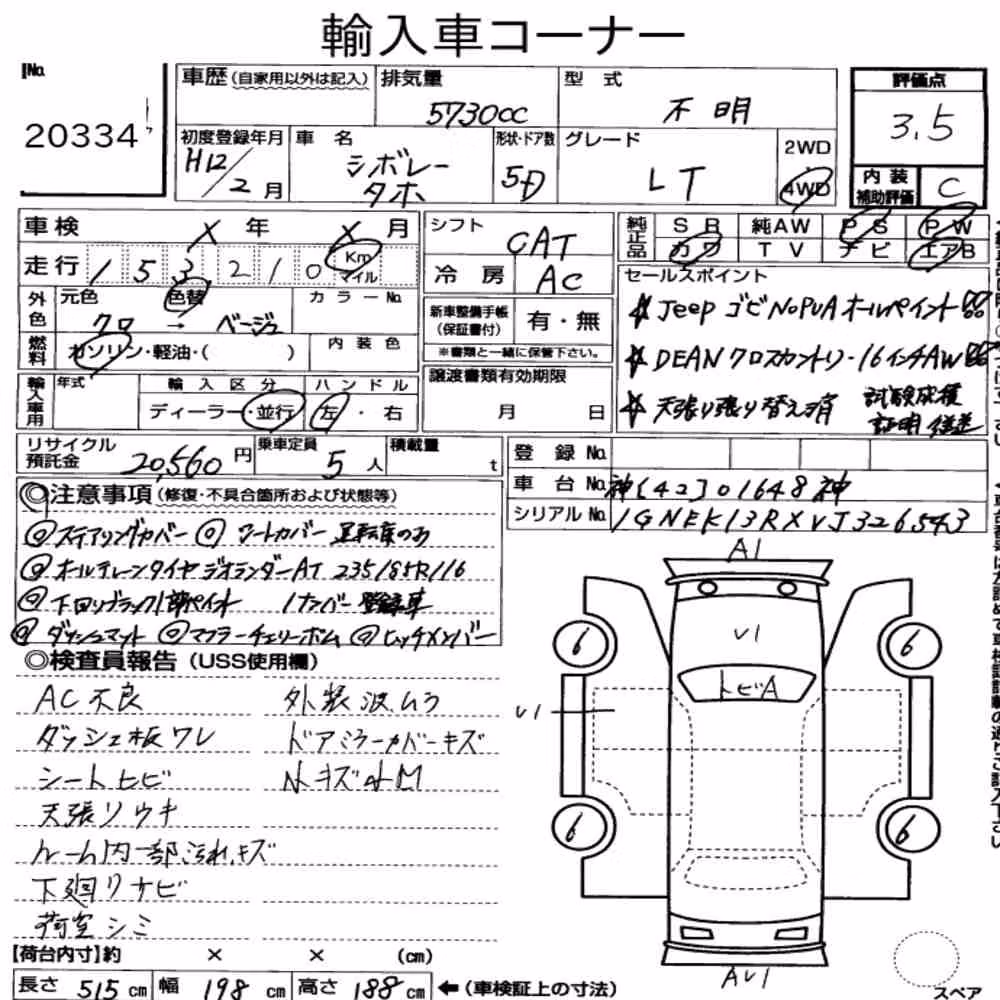 輸入車コーナー
No. 20334
車歴 (自家用以外は記入)
排気量 5730cc
型式 不明
評価点 3.5
初度登録年月 H12/2月
車名 シボレー タホ
形状・ドア数 5D
グレード LT
2WD
4WD
内装補助評価 C
車検 X 年 X 月
走行 153210 Km マイル
シフト CAT
冷房 AC
純正品 SR 純AW PS PW
カワ TV ナビ エアB
外色 元色 色替 カラーNo.
クロ → ベージュ
燃料 ガソリン・軽油・( ) 内装色
新車整備手帳(保証書付) 有・無
※書類と一緒に保管下さい。
セールスポイント
☆ Jeep ゴビ NoPUA オールペイント
☆ DEAN クロスカントリー 16インチAW
☆ 天張り張り替え済 試験成績証明
輸入車用 年式 輸入区分 ハンドル
ディーラー・並行 左・右
譲渡書類有効期限
月 日
リサイクル預託金 20,560円
乗車定員 5人
積載量 t
登録No.
車台No. 神[42]01648神
シリアルNo. 1GNEK13RXVJ326543
◎注意事項 (修復・不具合箇所および状態等)
◎ステアリングカバー ◎シートカバー 運転席のみ
◎オールテレーンタイヤ ジオランダーAT 235/85R/16
◎下回りブラック1部ペイント 1ナンバー登録車
◎ダッシュマット ◎マフラーチェリーボム ◎ヒッチメンバー
◎検査員報告 (USS使用欄)
AC不良 外装波ムラ
ダッシュ板ワレ ドアミラーカバーキズ
シートヒビ 小キズ小M
天張リウキ
ルーム内一部汚れ、キズ
下廻リサビ
荷室シミ
A1
V1
トビA
V1
6
6
6
6
AV1
スペア
【荷台内寸】約 × × (cm)
長さ 515 cm 幅 198 cm 高さ 188 cm ←(車検証上の寸法)